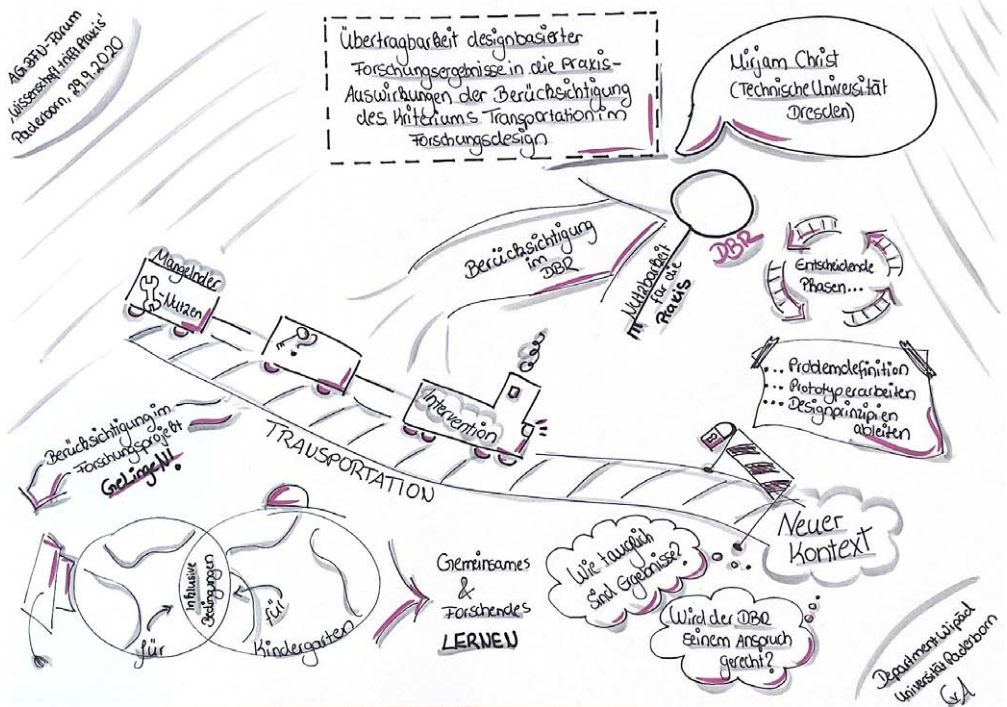 AG BFN-Forum
'Wissenschaft trifft Praxis'
Paderborn, 29.9.2020
Übertragbarkeit designbasierter
Forschungsergebnisse in die Praxis-
Auswirkungen der Berücksichtigung
des Kriteriums Transportation im
Forschungsdesign
Mirjam Christ
(Technische Universität
Dresden)
Berücksichtigung
im
DBR
Nutzbarkeit
für die
Praxis
DBR
Entscheidende
Phasen...
... Problemdefinition
... Prototyp erarbeiten
... Designprinzipien
ableiten
Mangelnder
-Nutzen
?
Intervention
TRANSPORTATION
Neuer
Kontext
Berücksichtigung im
Forschungsprojekt
GeLingeN!
Inklusive
Bedingungen
für
für
Kindergarten
Gemeinsames
&
Forschendes
LERNEN
Wie tauglich
sind Ergebnisse?
Wird der DBR
seinem Anspruch
gerecht?
Department Wipäd
Universität Paderborn